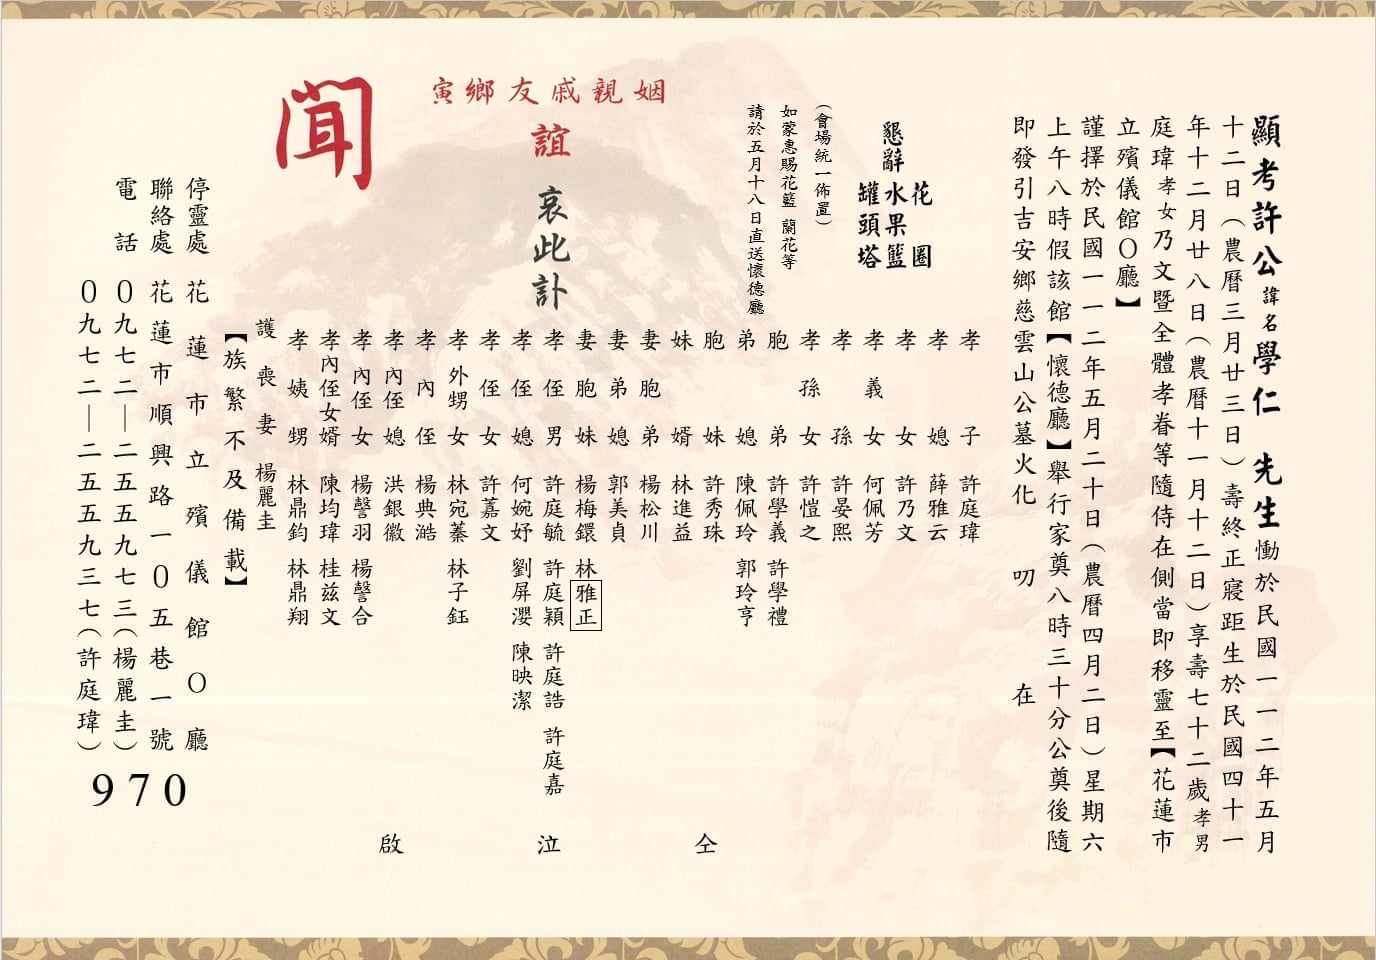 顯考許公諱名學仁 先生慟於民國一一二年五月
十二日(農曆三月廿三日)壽終正寢距生於民國四十一
年十二月廿八日(農曆十一月十二日)享壽七十二歲孝男
庭瑋孝女乃文暨全體孝眷等隨侍在側當即移靈至【花蓮市
立殯儀館〇廳】
謹擇於民國一一二年五月二十日(農曆四月二日)星期六
上午八時假該館【懷德廳】舉行家奠八時三十分公奠後隨
即發引吉安鄉慈雲山公墓火化 叨 在
懇辭
花圈
水果籃
罐頭塔
(會場統一佈置)
如蒙惠賜花籃 蘭花等
請於五月十八日直送懷德廳
姻親戚友鄉寅
誼
哀此訃
聞
孝子 許庭瑋
孝媳 薛雅云
孝女 許乃文
孝義女 何佩芳
孝孫 許晏熙
孝孫女 許愷之
胞弟 許學義 許學禮
弟媳 陳佩玲 郭玲亨
胞妹 許秀珠
妹婿 林進益
妻胞弟 楊松川
妻弟媳 郭美貞
妻胞妹 楊梅鐶 林雅正
孝侄男 許庭毓 許庭穎 許庭誥 許庭嘉
孝侄媳 何婉妤 劉屏瀴 陳映潔
孝侄女 許蕙文
孝外甥女 林宛蓁 林子鈺
孝內侄 楊典澔
孝內侄媳 洪銀徽
孝內侄女 楊謦羽 楊謦合
孝內侄女婿 陳均瑋 桂兹文
孝姨甥 林鼎鈞 林鼎翔
護喪妻 楊麗圭
【族繁不及備載】
仝 泣 啟
停靈處 花蓮市立殯儀館〇廳
聯絡處 花蓮市順興路一〇五巷一號
電話 〇九七二—二五五九七三(楊麗圭)
〇九七二—二五五九三七(許庭瑋)
970